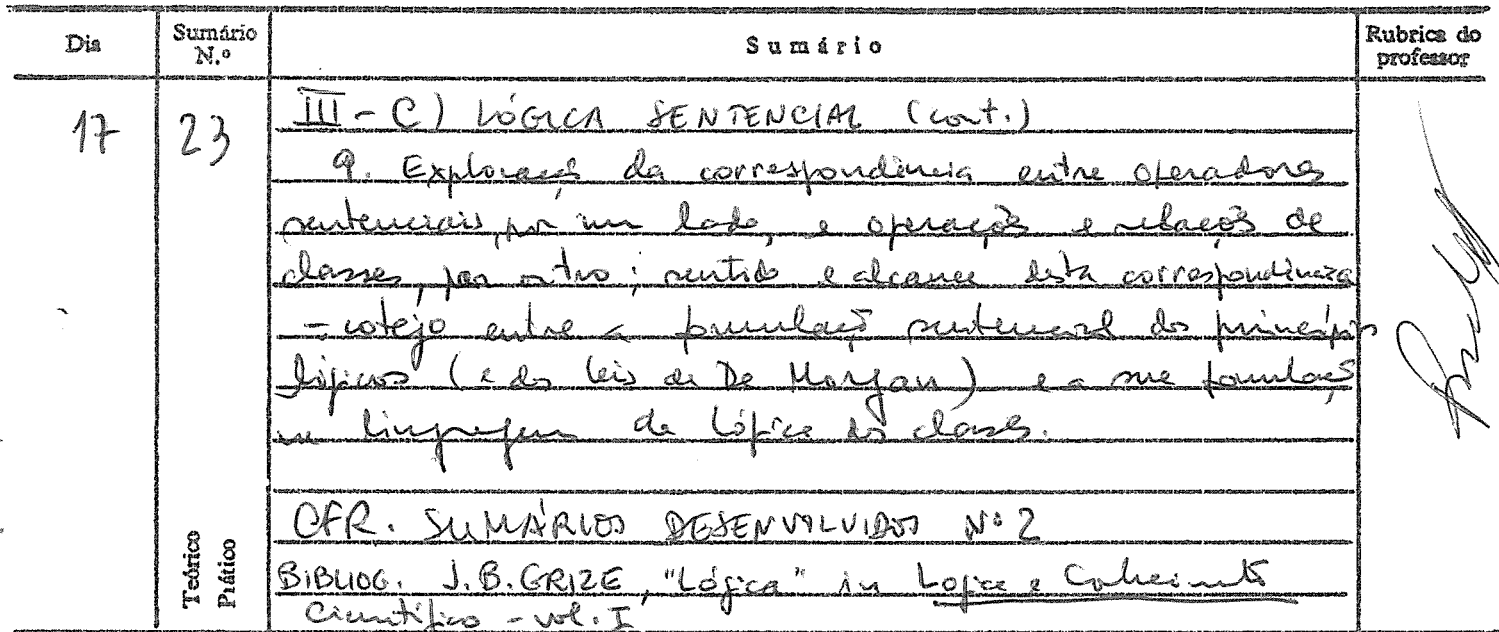 Dia
Sumário N.º
Sumário
Rubrica do professor
17
23
III - C) LÓGICA SENTENCIAL (cont.)
9. Exploração da correspondência entre operadores
sentenciais, por um lado, e operações e relações de
classes, por outro; sentido e alcance desta correspondência
- cotejo entre a formulação sentencial dos princípios
lógicos (e das leis de De Morgan) e a sua formulação
na linguagem da Lógica das classes.
CFR. SUMÁRIOS DESENVOLVIDOS Nº 2
BIBLIOG. J.B. GRIZE, "Lógica" in Logica e Conhecimento
Científico - vol. I
Teórico
Prático